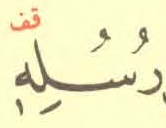 رُسُلِهٖ قف